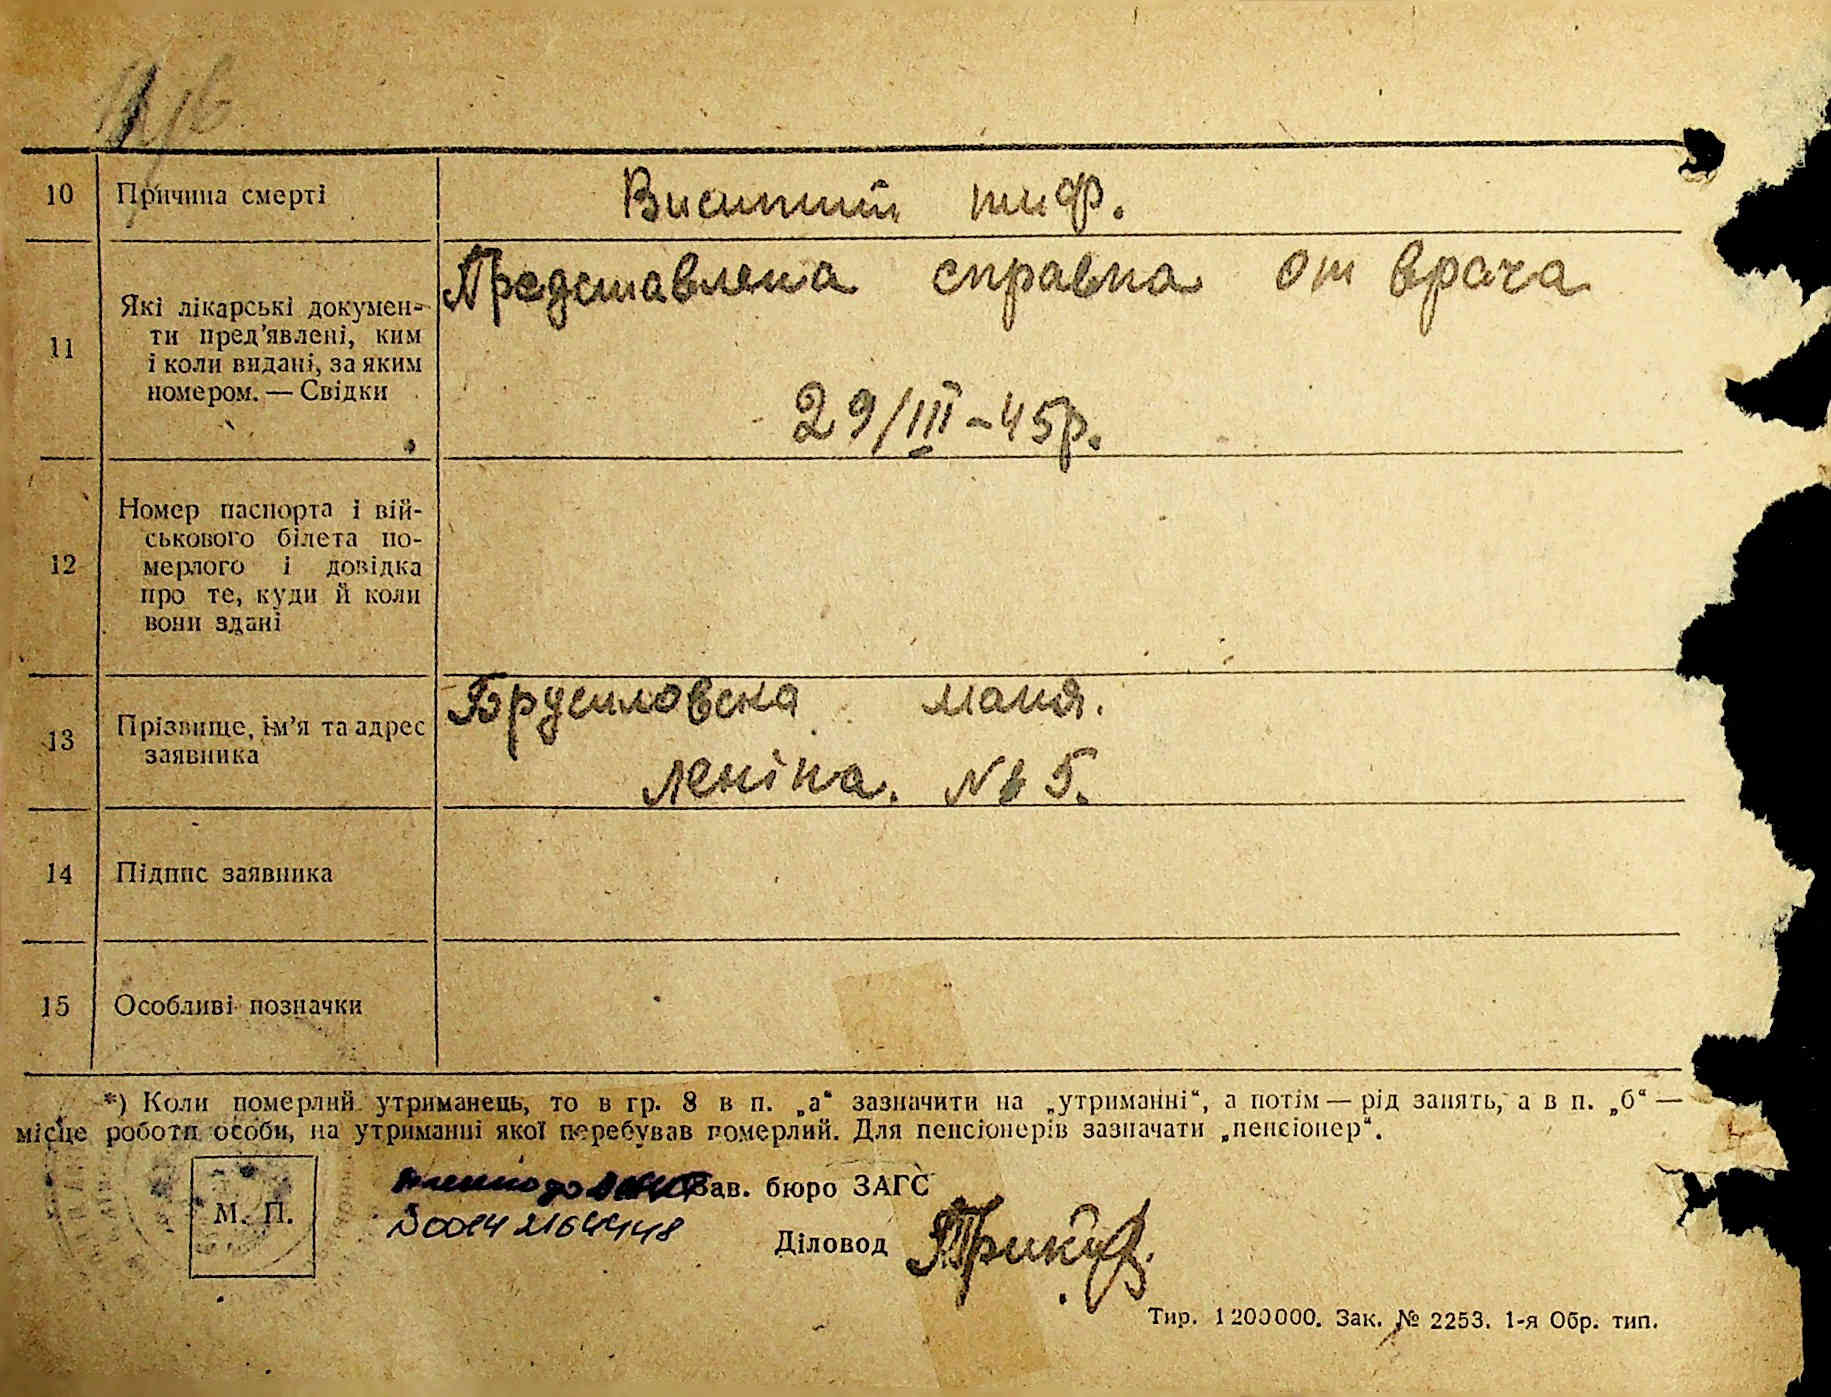 10 Причина смерті Висипний тиф.
Представлена справка от врача
11 Які лікарські докумен-
ти пред’явлені, ким
і коли видані, за яким
номером. — Свідки
29/III-45р.
12 Номер паспорта і вій-
ськового білета по-
мерлого і довідка
про те, куди й коли
вони здані
13 Прізвище, ім’я та адрес
заявника
Брусиловска маня.
Леніна. № 5.
14 Підпис заявника
15 Особливі позначки
*) Коли померлий утриманець, то в гр. 8 в п. „а“ зазначити на „утриманні“, а потім — рід занять, а в п. „б“ —
місце роботи особи, на утриманні якої перебував померлий. Для пенсіонерів зазначати „пенсіонер“.
Зав. бюро ЗАГС
М. П.
Діловод
Тир. 1200000. Зак. № 2253. 1-я Обр. тип.